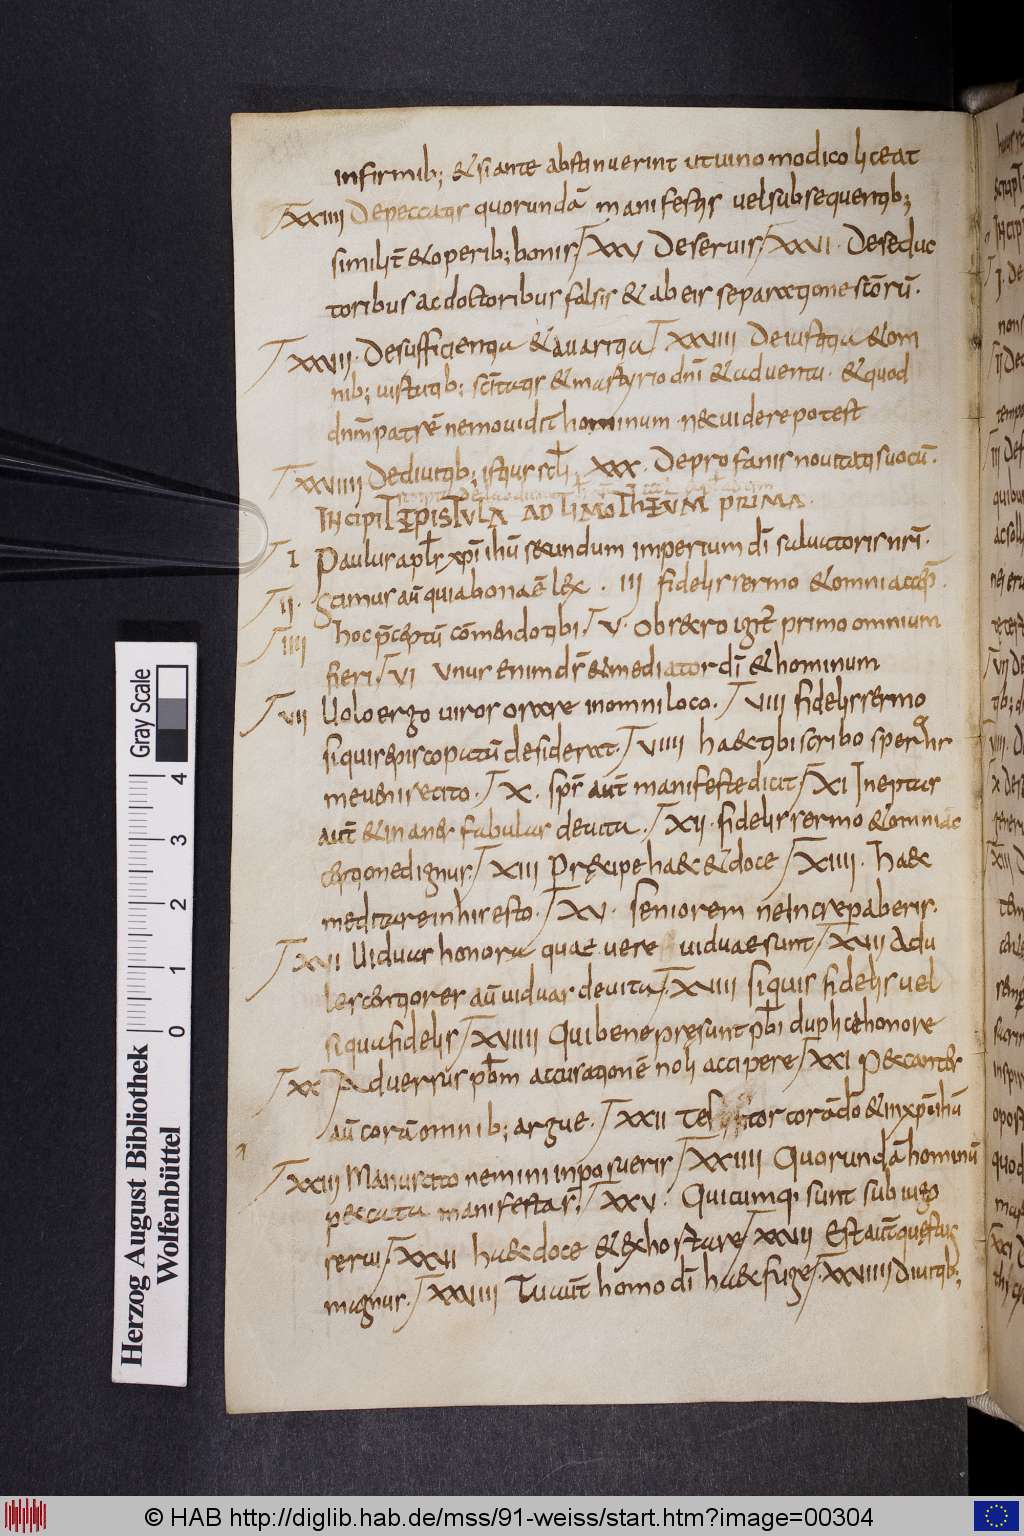 infirmib; & si ante abstinuerint ut uino modico liceat
XXIIII De peccatis quorundā manifestis uel subsequentib;
similit̄ & operib; bonis XXV De seruis XXVI De seduc
toribus ac doctoribus falsis & ab eis separatione sc̄orū.
XXVII. De sufficientia & auaritia XXVIII De iustitia & om
nib; uirtutib; sc̄itatis & martyrio dn̄i & aduentu. & quod
dn̄m patrē nemo uidit hominum nec uidere potest
XXVIIII De diuitib; istius scl̄i XXX. De profanis nouitatis uocū.
INCIPIT EPISTULA AD TIMOTHEUM PRIMA.
I Paulus apl̄s xp̄i ihū secundum imperium dī saluatoris nr̄i.
II. Scimus aū quia bona ē lex. III fidelis sermo & omni accep̄.
IIII hoc p̄ceptū cōmendo tibi. V. Obsecro igit̄ primo omnium
fieri VI Unus enim ds̄ & mediator dī & hominum
VII Uolo ergo uiros orare in omni loco. VIII fidelis sermo
si quis episcopatū desiderat. VIIII haec tibi scribo sperans
me uenire cito. X. sp̄s aūt manifeste dicit XI Ineptas
aūt & inanes fabulas deuita. XII. fidelis sermo & omni ac
ceptione dignus XIII Precipe haec & doce XIIII. haec
meditare in his esto. XV. Seniorem ne increpaberis.
XVI Uiduas honora quae uere uiduae sunt XVII Adu
lescentiores aū uiduas deuita XVIII Si quis fidelis uel
si qua fidelis XVIIII Qui bene presunt pb̄i duplice honore
XX Aduersus pb̄m accusationē noli accipere XXI Peccantes
aū corā omnib; argue. XXII Testor corā dō & in xp̄o ihū
XXIII Manus cito nemini inposueris XXIIII Quorundā hominū
peccata manifesta s; XXV. Quicumq; sunt sub iugo
serui XXVI haec doce & exhortare XXVII Est aūt questus
magnus. XXVIII Tu aūt homo dī haec fuge XXVIIII Diuitib;
Herzog August Bibliothek
Wolfenbüttel
Gray Scale
0 1 2 3 4
© HAB http://diglib.hab.de/mss/91-weiss/start.htm?image=00304